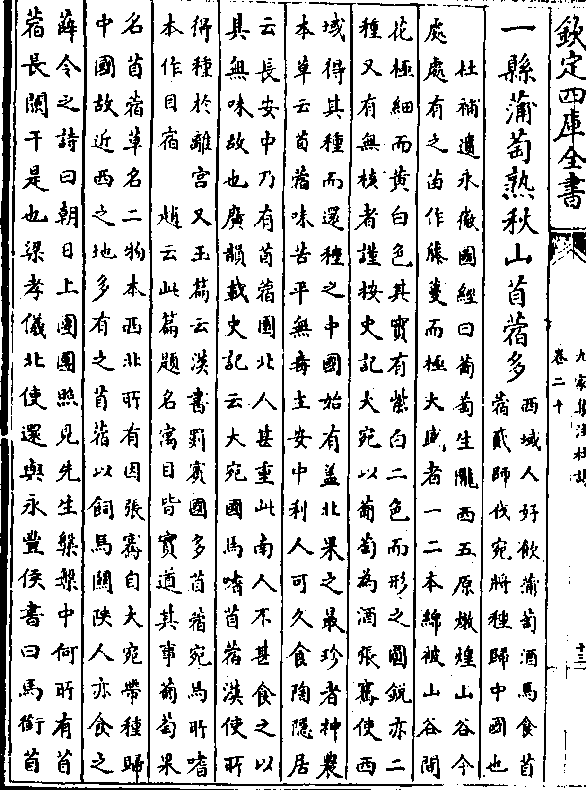 欽定四庫全書
九家集注杜詩
卷二十
十三
一縣蒲萄熟秋山苜蓿多
西域人好飲蒲萄酒馬食苜
蓿貳師伐宛將種歸中國也
杜補遺永徽圖經曰葡萄生隴西五原燉煌山谷今
處處有之苗作藤蔓而極大盛者一二本綿被山谷間
花極細而黃白色其實有紫白二色而形之圓銳亦二
種又有無核者謹按史記大宛以葡萄為酒張騫使西
域得其種而還種之中國始有盖北果之最珍者神農
本草云苜蓿味苦平無毒主安中利人可久食陶隱居
云長安中乃有苜蓿園北人甚重此南人不甚食之以
其無味故也廣韻載史記云大宛國馬嗜苜蓿漢使所
得種於離宮又玉篇云漢書罽賓國多苜蓿宛馬所嗜
本作目宿 趙云此篇題名寓目皆實道其事葡萄果
名苜蓿草名二物本西北所有因張騫自大宛帶種歸
中國故近西之地多有之苜蓿以飼馬關陝人亦食之
薛令之詩曰朝日上團團照見先生槃槃中何所有苜
蓿長闌干是也梁孝儀北使還與永豐侯書曰馬銜苜